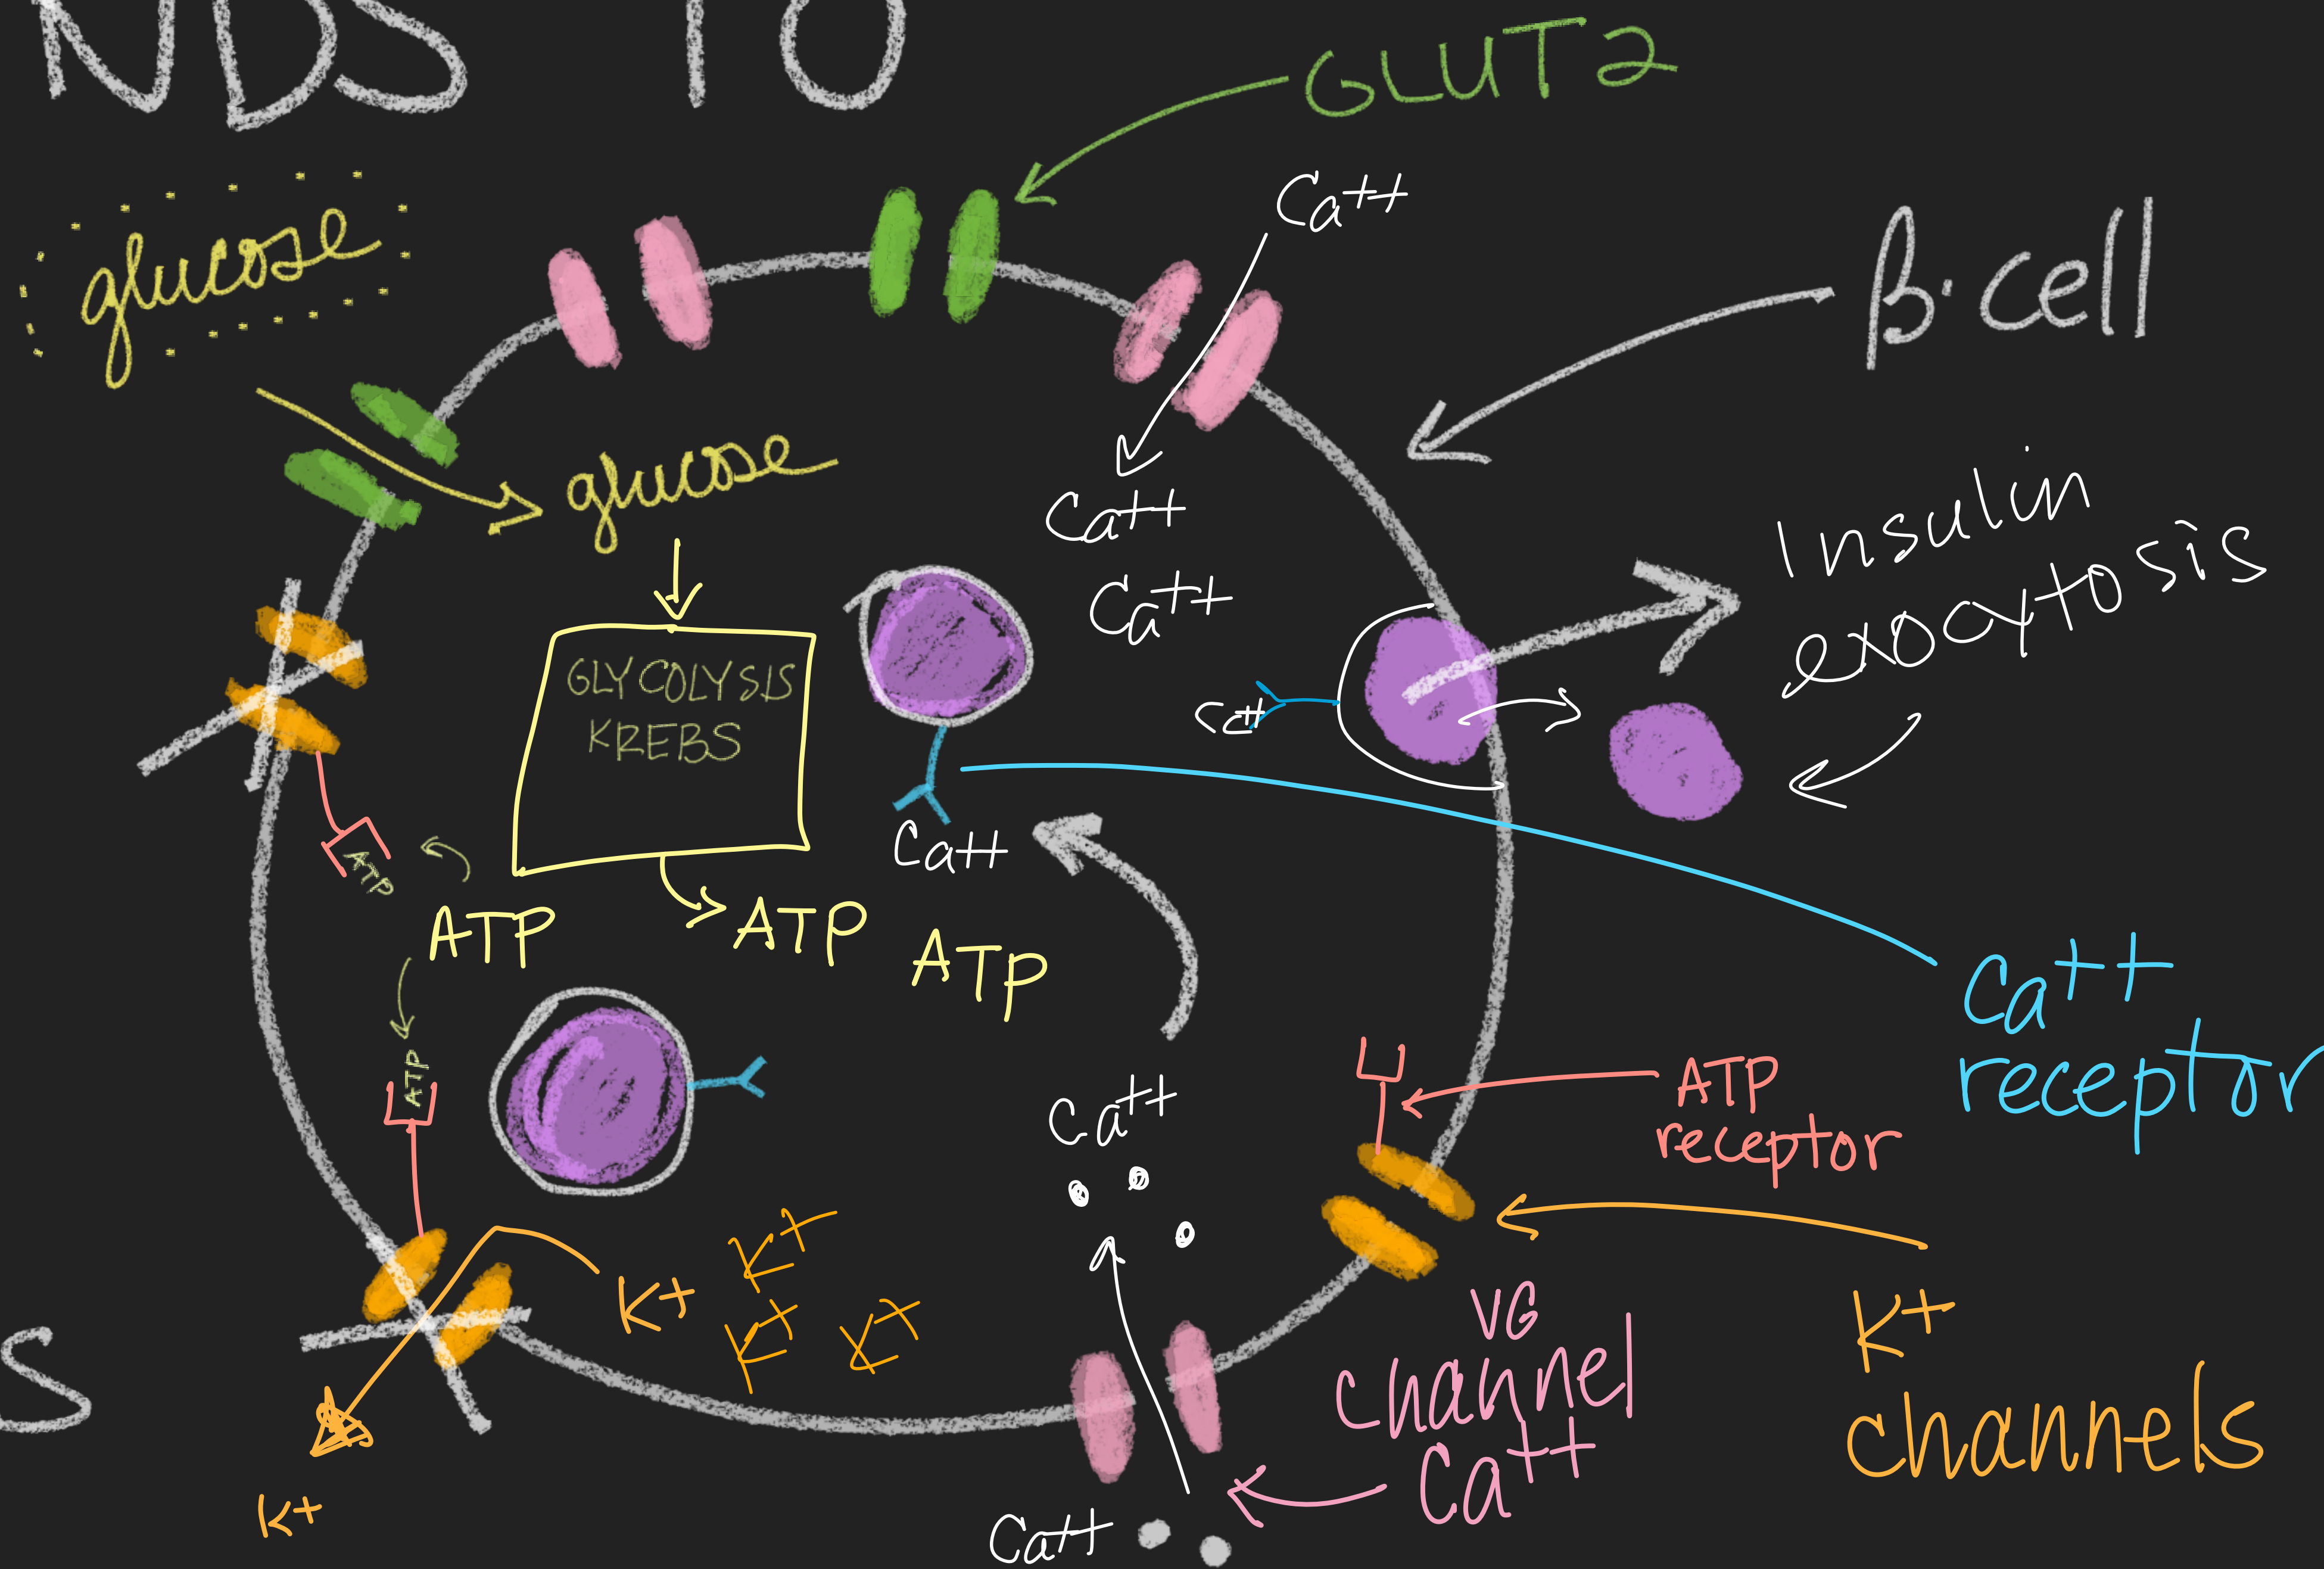 NDS TO
GLUT2
glucose
Ca++
β-cell
glucose
Ca++
Ca++
Insulin
exocytosis
GLYCOLYSIS
KREBS
Ca++
Ca++
ATP
ATP
ATP
ATP
Ca++
receptor
ATP
Ca++
ATP
receptor
K+
K+
K+
K+
VG
channel
Ca++
K+
channels
S
K+
Ca++